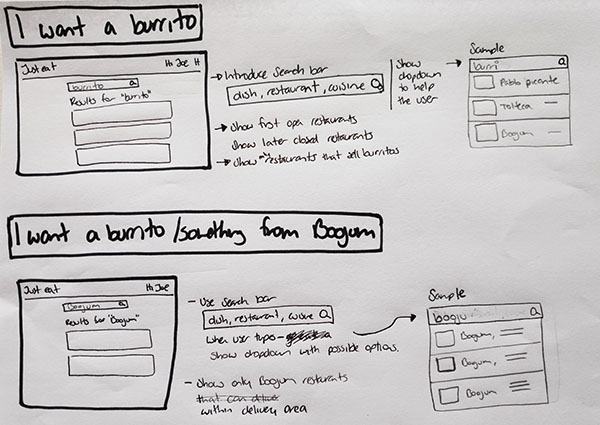 I want a burrito
Just eat Hi Joe H
burrito
Results for "burrito"
→ Introduce Search bar
dish, restaurant, cuisine
→ Show first open restaurants
Show later closed restaurants
→ Show only restaurants that sell burritos
Show
dropdown
to help
the user
Sample
burri
Pablo picante
Tolteca
Bogum
I want a burrito/something from Boojum
Just eat Hi Joe
Boojum
Results for "Boojum"
- Use Search bar
dish, restaurant, cuisine
when user types -
Show dropdown with possible options.
- Show only Boojum restaurants
that can deliver
within delivery area
Sample
booju
Boojum,
Boojum,
Boojum